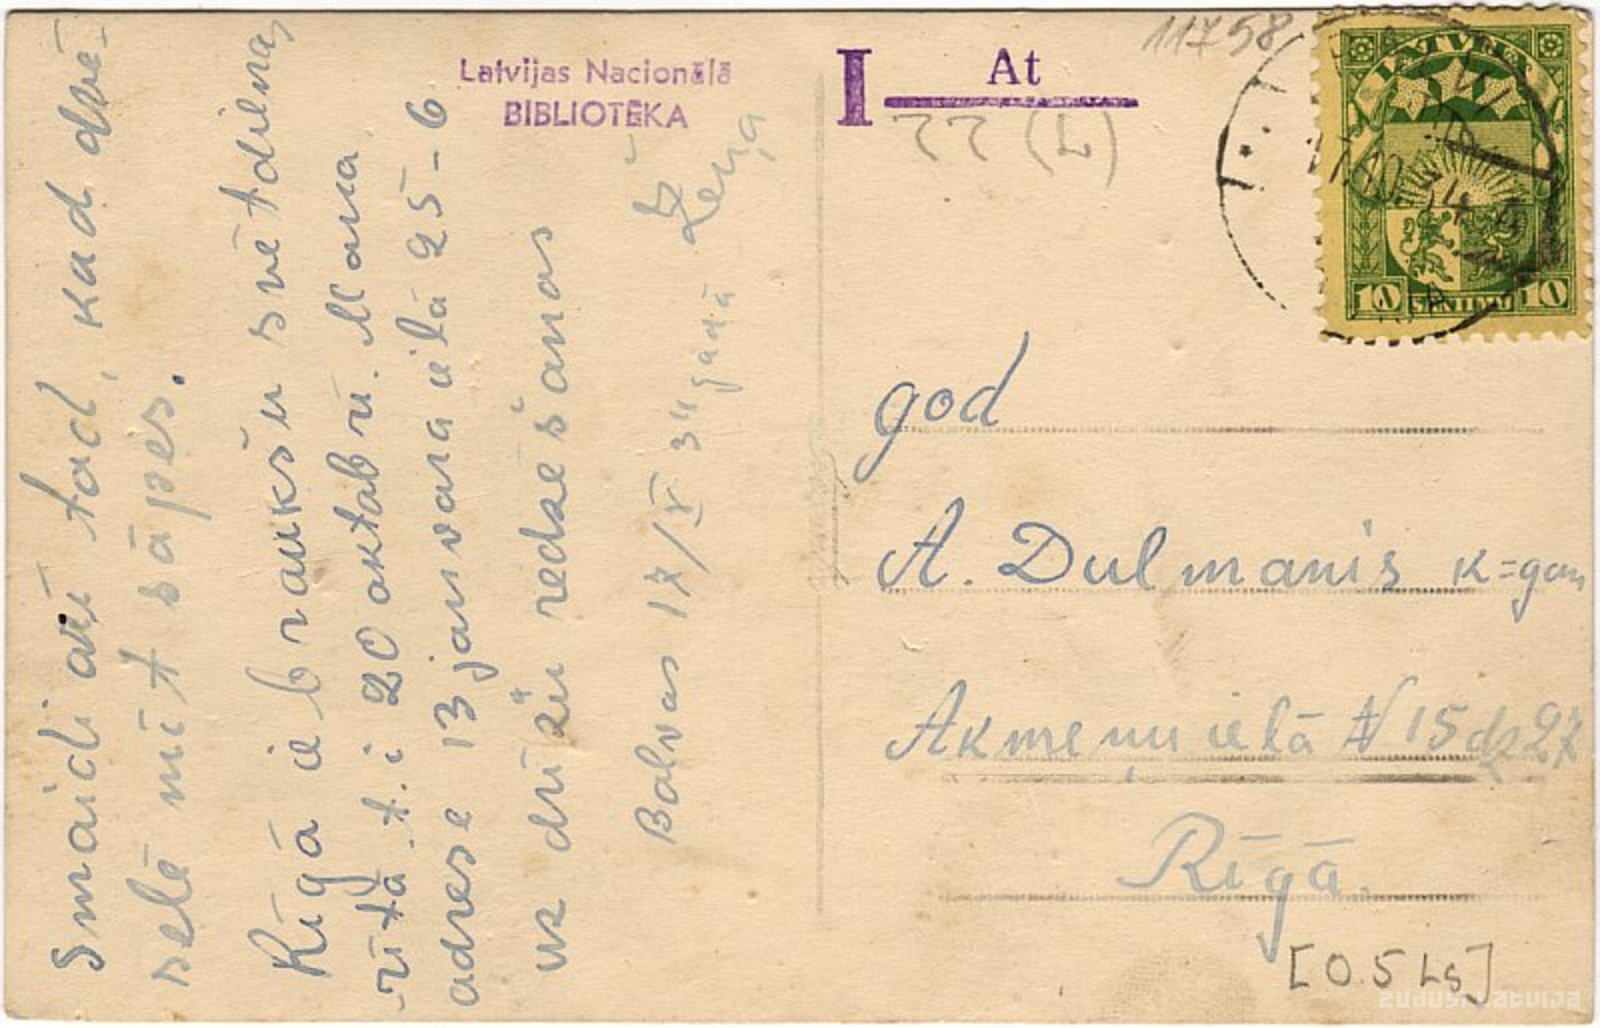 Smaidi arī tad, kad dvē-
selē mīt sāpes.
Rīgā iebraukšu svētdienas
rītā t.i 20 oktobrī. Mana
adrese 13 janvara ielā 25-6
uz drīzu redzešanos
Balvos 17/X 34 gadā
Zeņa
Latvijas Nacionālā
BIBLIOTĒKA
I At
22 (L)
11758
LATVIJA
17.10.34
10 SANTIMU 10
god
A. Dulmanis k=gam
Akmeņu ielā N 15 dz 27
Rīgā.
[0.5 Ls]
zudusilatvija